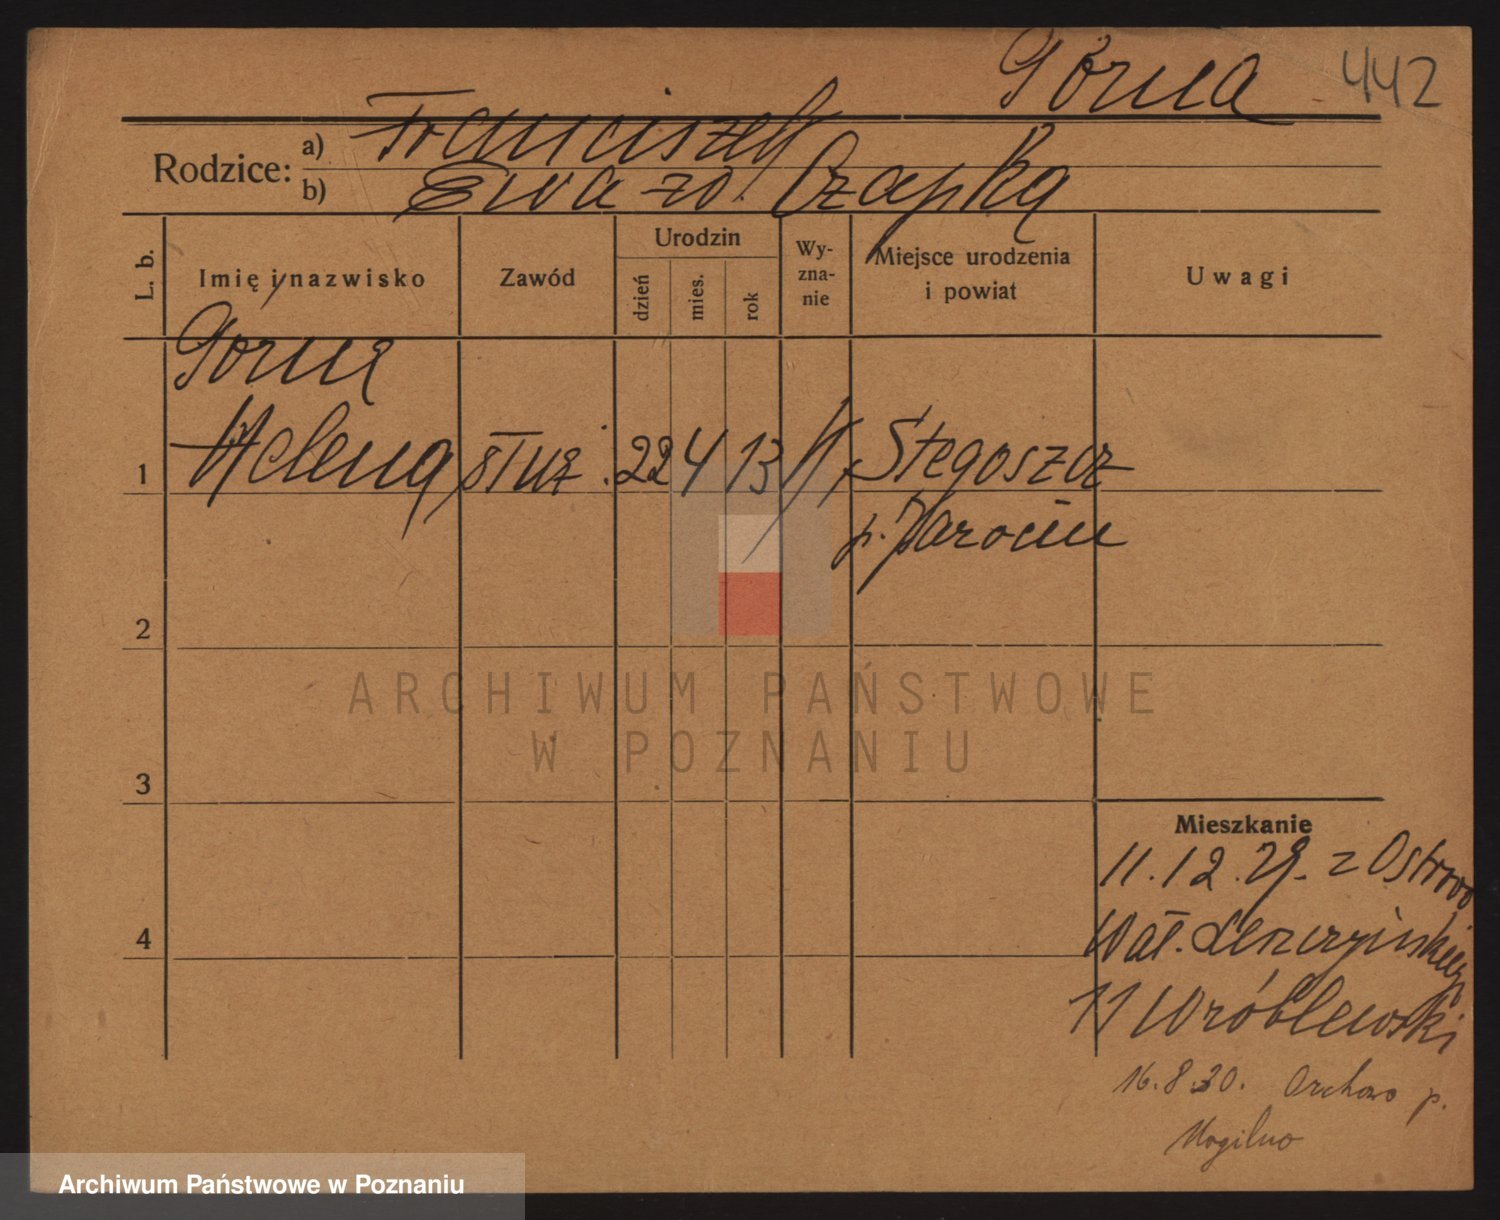 Górna 442
Rodzice: a) Franciszek
b) Ewa zd. Czapka
L. b. Imię i nazwisko Zawód Urodzin dzień mies. rok Wy-zna-nie Miejsce urodzenia i powiat Uwagi
Górna
1 Helena służ. 22 4 13 k Stegoszcz
p. Jarocin
2
3
4
ARCHIWUM PAŃSTWOWE
W POZNANIU
Mieszkanie
11.12.29. z Ostrowo
Wał. Leszczyńskiego
11 Wróblewski
16.8.30. Orchowo p.
Mogilno
Archiwum Państwowe w Poznaniu